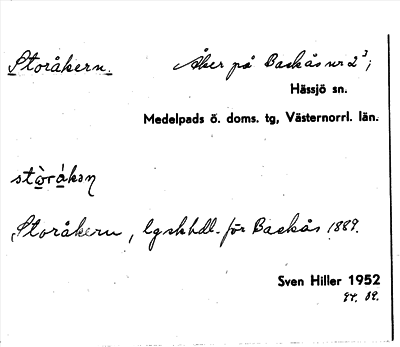 Storåkern. Åker på Backås nr 2³;
Hässjö sn.
Medelpads ö. doms. tg, Västernorrl. län.
stòråkəɳ
Storåkern, lgskhdl. för Backås 1889.
Sven Hiller 1952